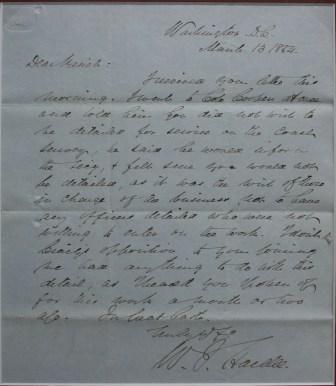 Washington D.C.
March 13 1854.
Dear Mirick:
I received your letter this
morning. I went to Cooper House
and told him you did not wish to
be detailed for service on the Coast
Survey, he said he would inform
the Secy, & felt sure you would not
be detailed, as it was the wish of those
in charge of the business, not to have
any officers detailed who were not
willing to enter on the work. I don't
opposition to your joining
me had anything to do with this
detail, as I heard you spoken of
for this work a month or two
ago. In great haste.
Truly Yrs
W. J. Hardee.